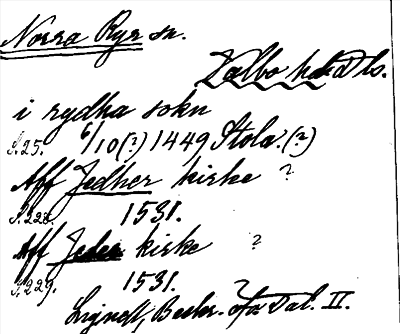 Norra Ryr sn.
Valbo hd Dls.
i rydha sokn
S.25. 6/10(?) 1449 Stola.(?)
Aff Jedher kirke ?
S.228. 1531.
Aff Jeder kirke ?
S.229. 1531.
Lignell, Beskr. öfv. Dal. II.